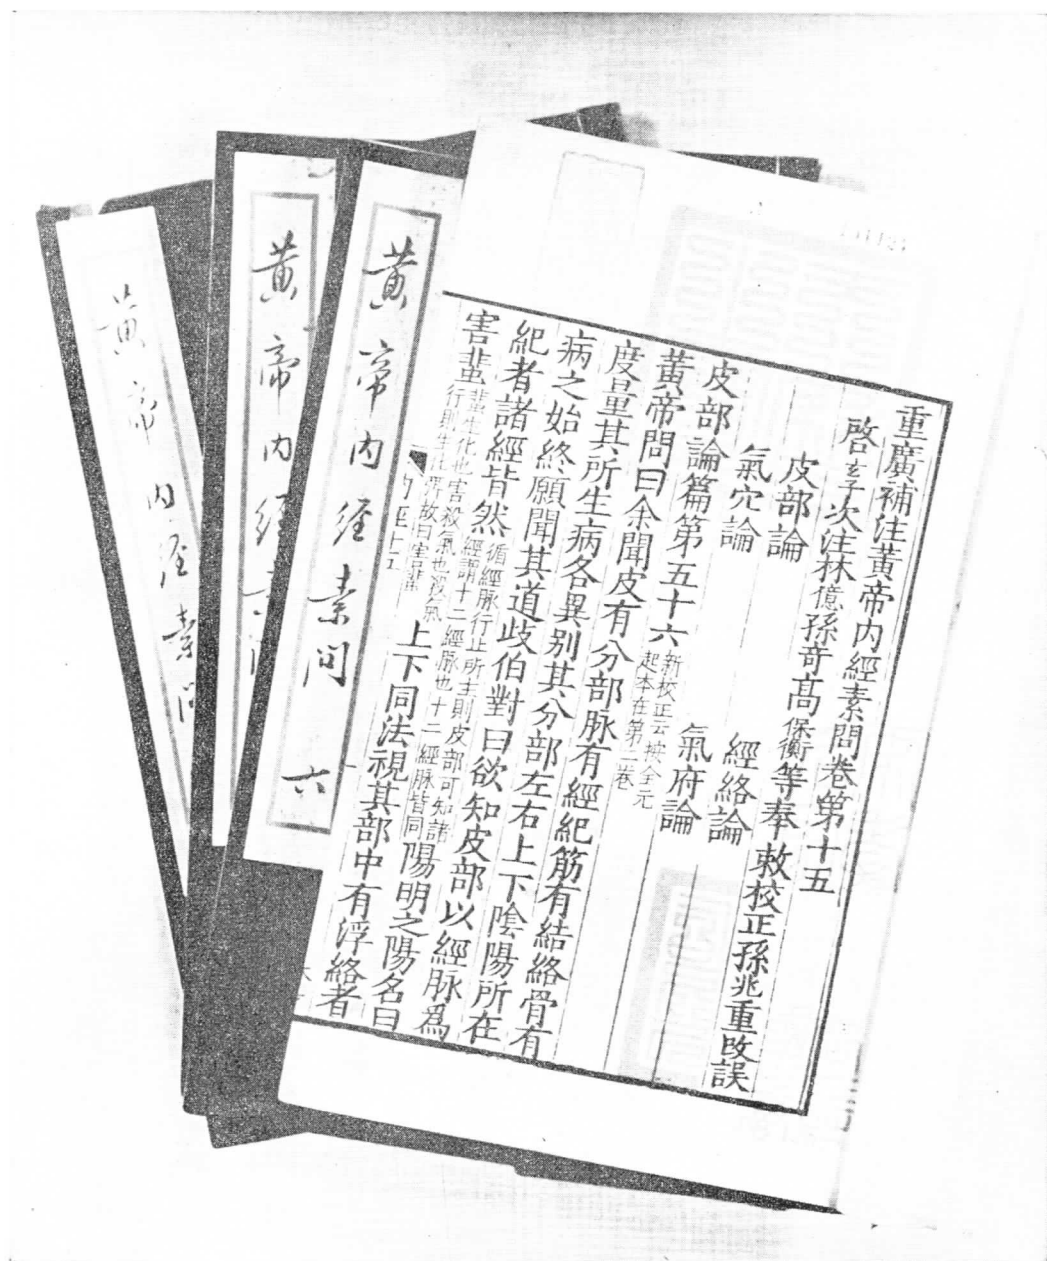 重廣補注黃帝內經素問卷第十五
啓玄子次注林億孫奇高保衡等奉敕校正孫兆重改誤
皮部論
經絡論
氣穴論
氣府論
皮部論篇第五十六
新校正云按全元
起本在第二卷
黃帝問曰余聞皮有分部脉有經紀筋有結絡骨有
度量其所生病各異别其分部左右上下陰陽所在
病之始終願聞其道歧伯對曰欲知皮部以經脉爲
紀者諸經皆然
循經脉行止所主則皮部可知諸
經謂十二經脉也十二經脉皆同
陽明之陽名曰
害蜚
蜚生化也害殺氣也殺氣
行則生化弭故曰害蜚
上下同法視其部中有浮絡者
黃帝內经素问 六
黃帝內经素
黃帝內经素问